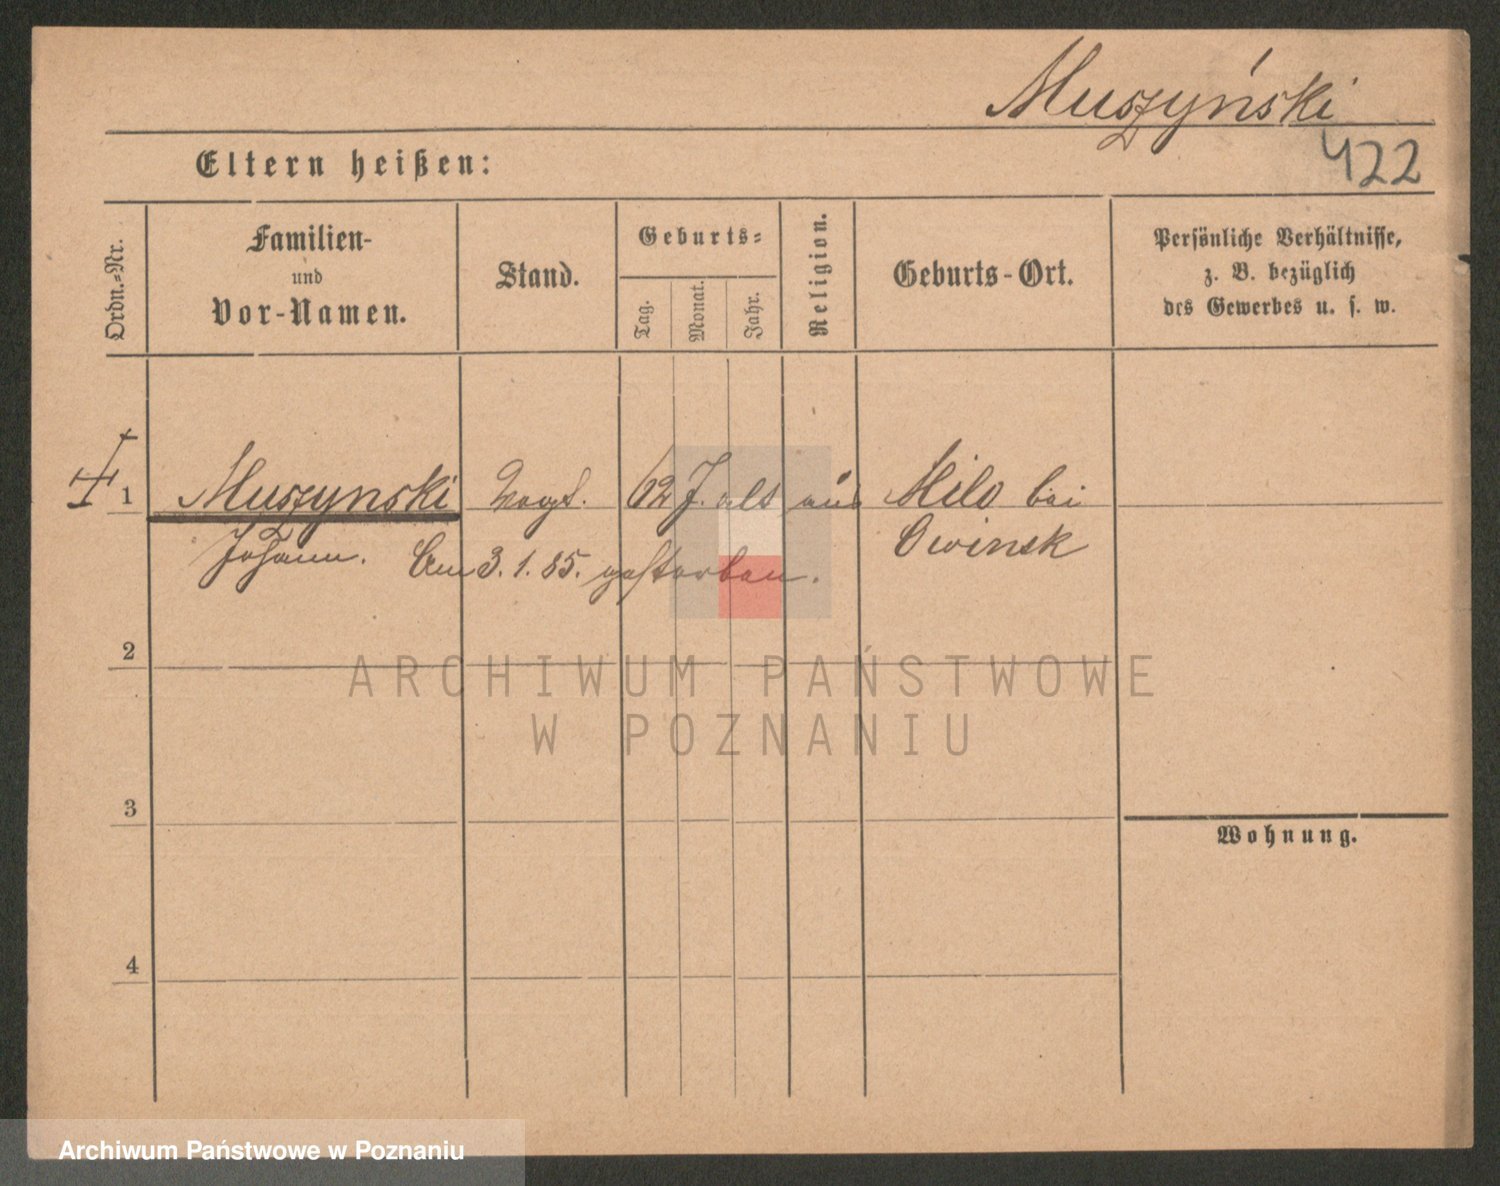 Muszyński
422
Eltern heißen:
Ordn.-Nr.
Familien-
und
Vor-Namen.
Stand.
Geburts-
Tag.
Monat.
Jahr.
Religion.
Geburts-Ort.
Persönliche Verhältnisse,
z. B. bezüglich
des Gewerbes u. s. w.
1 Muszynski Vogt. 62 J. alt aus Milo bei
Johann. Am 3.1.85. gestorben. Owinsk
2
ARCHIWUM PAŃSTWOWE
W POZNANIU
3
Wohnung.
4
Archiwum Państwowe w Poznaniu